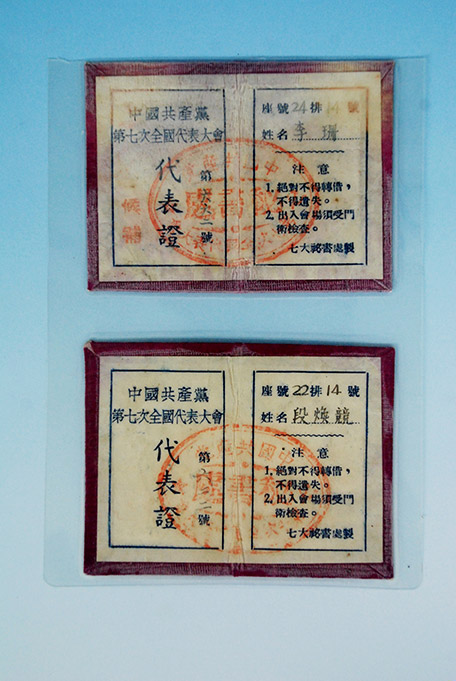 中國共產黨
第七次全國代表大會
代表證
第
號
候補
座號24排14號
姓名 李珊
注意
1. 絕對不得轉借，
不得遺失。
2. 出入會場須受門
衛檢查。
七大祕書處製
中國共產黨
第七次全國代表大會
代表證
第
號
座號22排14號
姓名 段煥競
注意
1. 絕對不得轉借，
不得遺失。
2. 出入會場須受門
衛檢查。
七大祕書處製